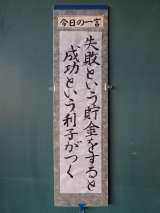 今日の一言
失敗という貯金をすると
成功という利子がつく